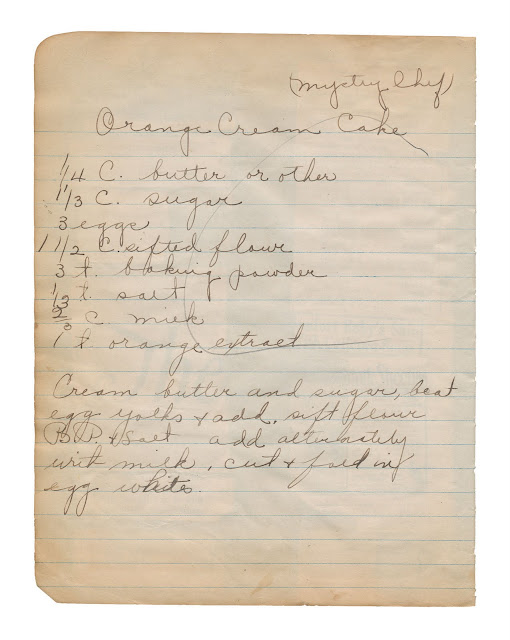 (Mystery Chef)
Orange Cream Cake
1/4 C. butter or other
1 1/3 C. sugar
3 eggs
1 1/2 C. sifted flour
3 t. baking powder
1/3 t. salt
2/3 C milk
1 t orange extract
Cream butter and sugar, beat
egg yolks & add. sift flour
B.P. & salt add alternately
with milk, cut & fold in
egg whites.